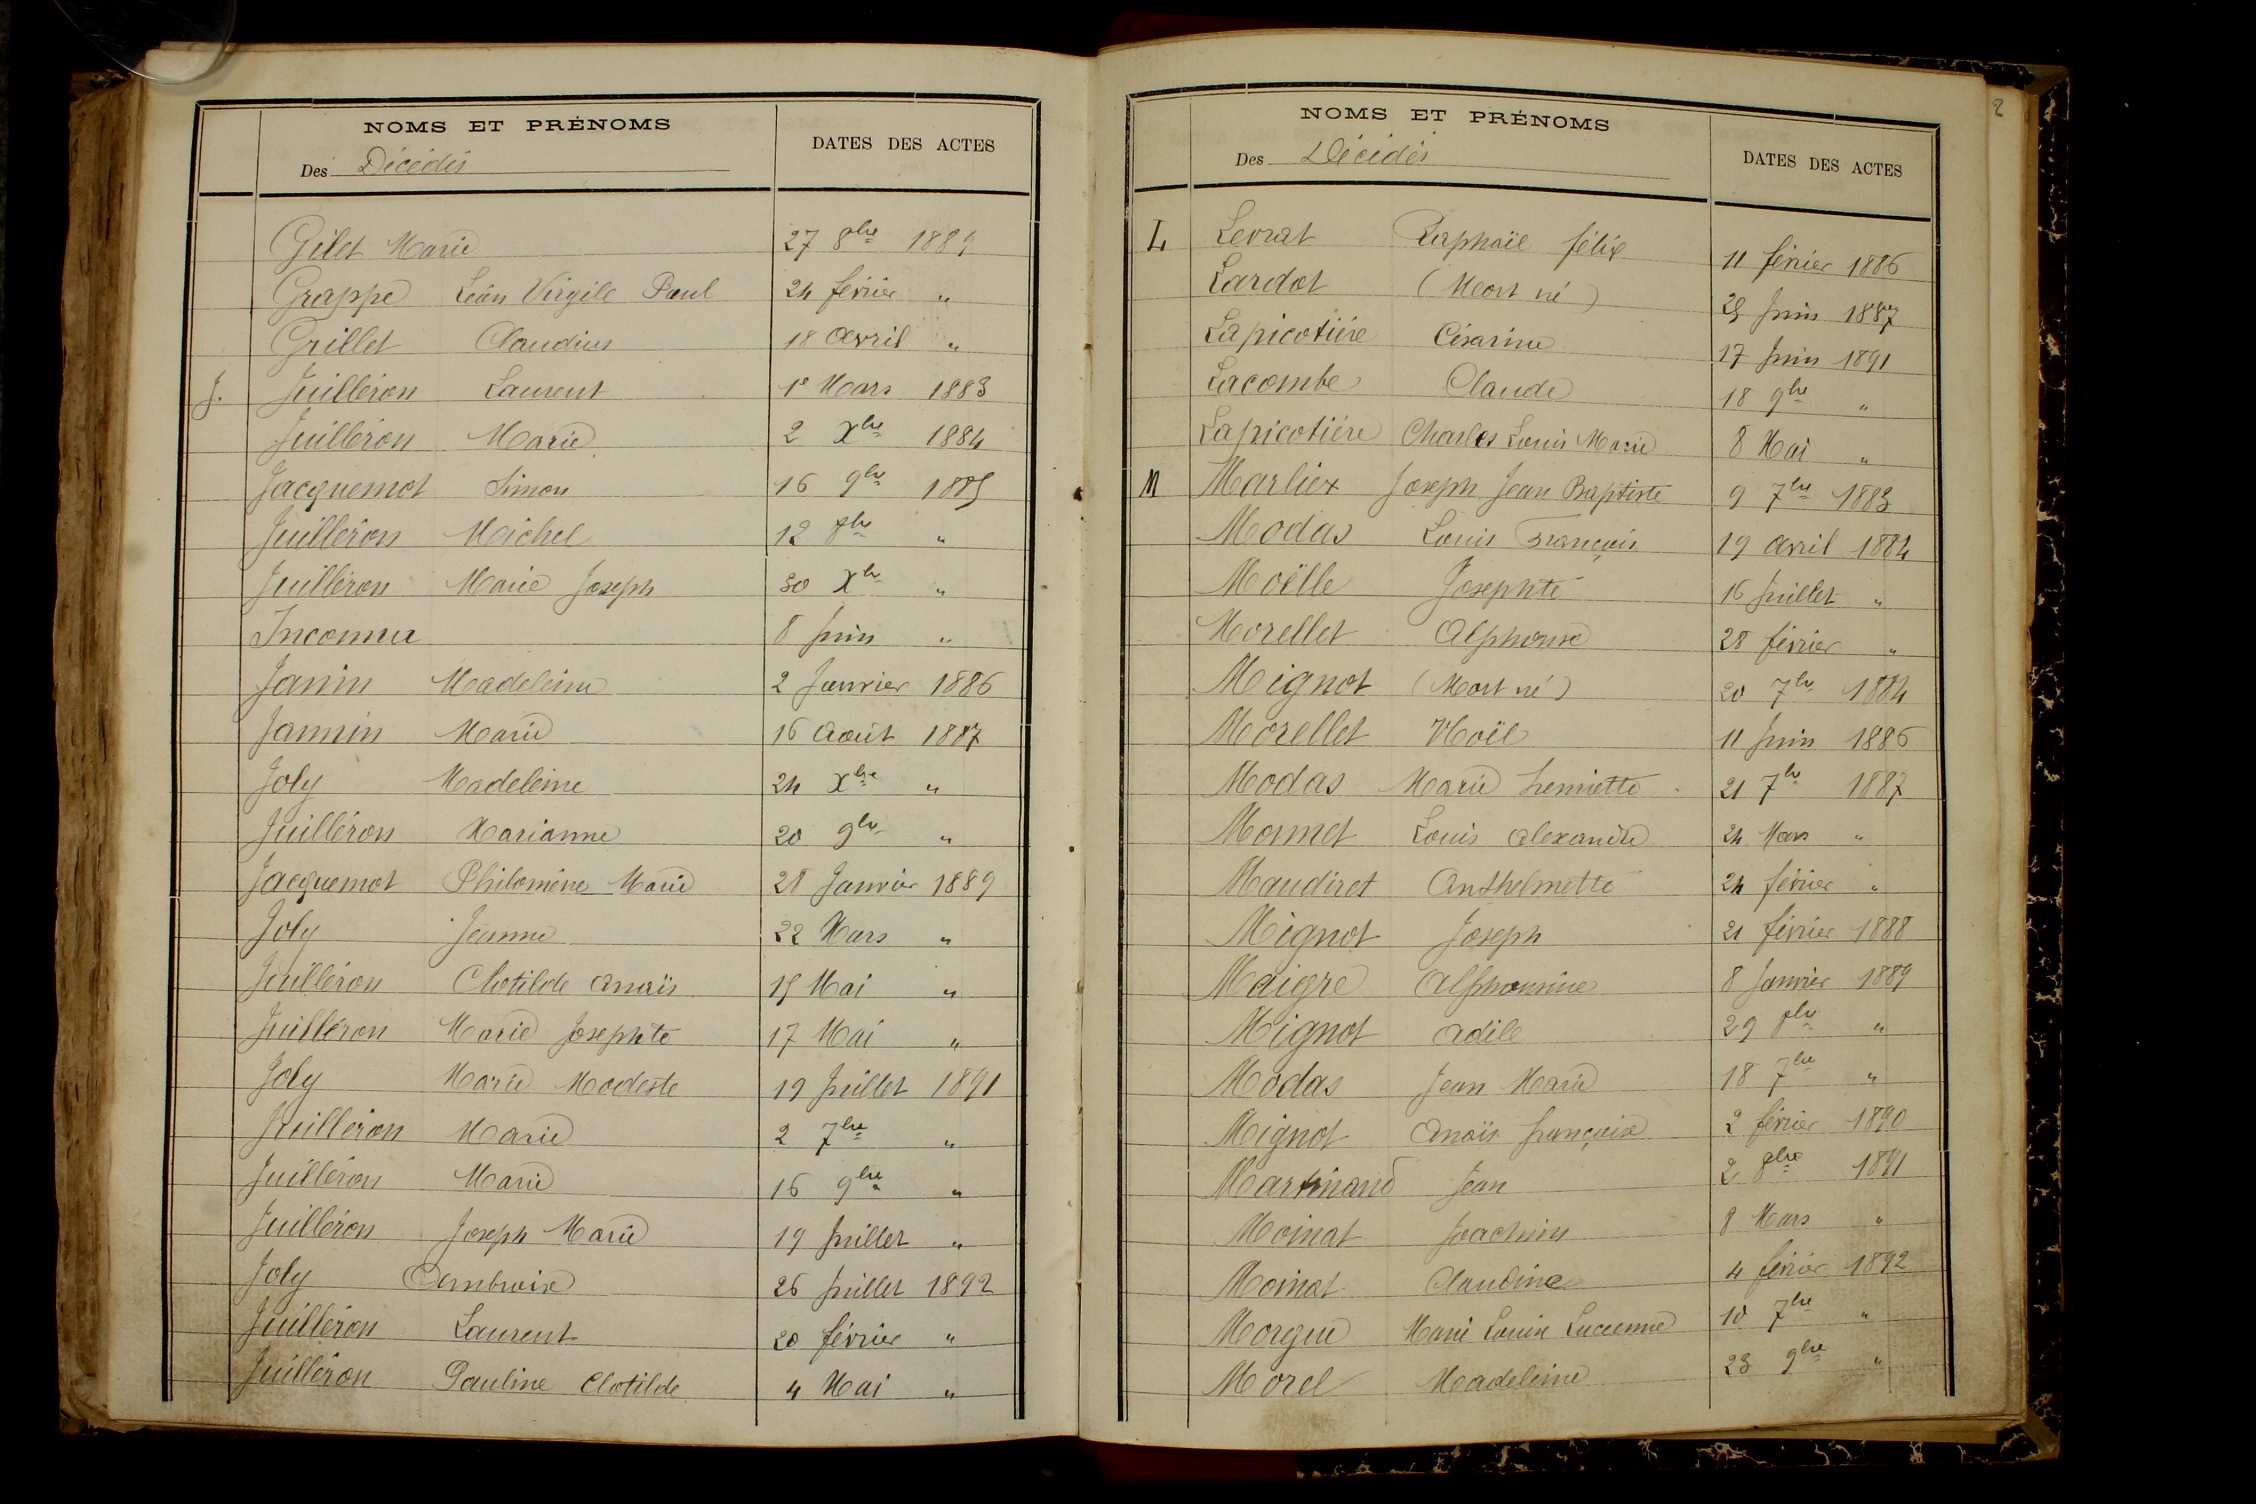 NOMS ET PRÉNOMS
Des Décédés
DATES DES ACTES
Gilet Marie 27 8bre 1889
Grappe Léon Virgile Paul 24 février "
Grillet Claudius 18 avril "
J. Juilléron Laurent 1er Mars 1883
Juilléron Marie 2 Xbre 1884
Jacquemot Simon 16 9bre 1885
Juilléron Michel 12 8bre "
Juilléron Marie Joseph 30 Xbre "
Inconnu 8 Juin "
Janin Madeleine 2 Janvier 1886
Jannin Marie 16 Août 1887
Joly Madeleine 24 Xbre "
Juilléron Marianne 20 9bre "
Jacquemot Philomène Marie 28 Janvier 1889
Joly Jeanne 22 Mars "
Juilléron Clotilde Anaïs 15 Mai "
Juilléron Marie Josephte 17 Mai "
Joly Marie Modeste 19 Juillet 1891
Juilléron Marie 2 7bre "
Juilléron Marie 16 9bre "
Juilléron Joseph Marie 19 Juillet "
Joly Ambroise 26 Juillet 1892
Juilléron Laurent 20 février "
Juilléron Pauline Clotilde 4 Mai "
2
NOMS ET PRÉNOMS
Des Décédés
DATES DES ACTES
L Levrat Raphaël félix 11 février 1886
Lardot (Mort né) 29 Juin 1887
Lapicotière Césarine 17 Juin 1891
Lacombe Claude 18 9bre "
Lapicotière Charles Louis Marie 8 Mai "
M Marlier Joseph Jean Baptiste 9 7bre 1883
Modas Louis François 19 avril 1884
Moëlle Josephte 16 Juillet "
Morellet Alphonse 28 février "
Mignot (Mort né) 20 7bre 1884
Morellet Noël 11 Juin 1886
Modas Marie henriette 21 7bre 1887
Mamet Louis alexandre 24 Mars "
Maudiret Anthelmette 24 février "
Mignot Joseph 21 février 1888
Maigre Alphonsine 8 Janvier 1889
Mignot adile 29 8bre "
Modas Jean Marie 18 7bre "
Mignot Anaïs françoise 2 février 1890
Martinand Jean 2 8bre 1891
Moinat Joachim 8 Mars "
Moinat Claudine 4 février 1892
Morgue Marie Louise Lucienne 10 7bre "
Morel Madeleine 23 9bre "